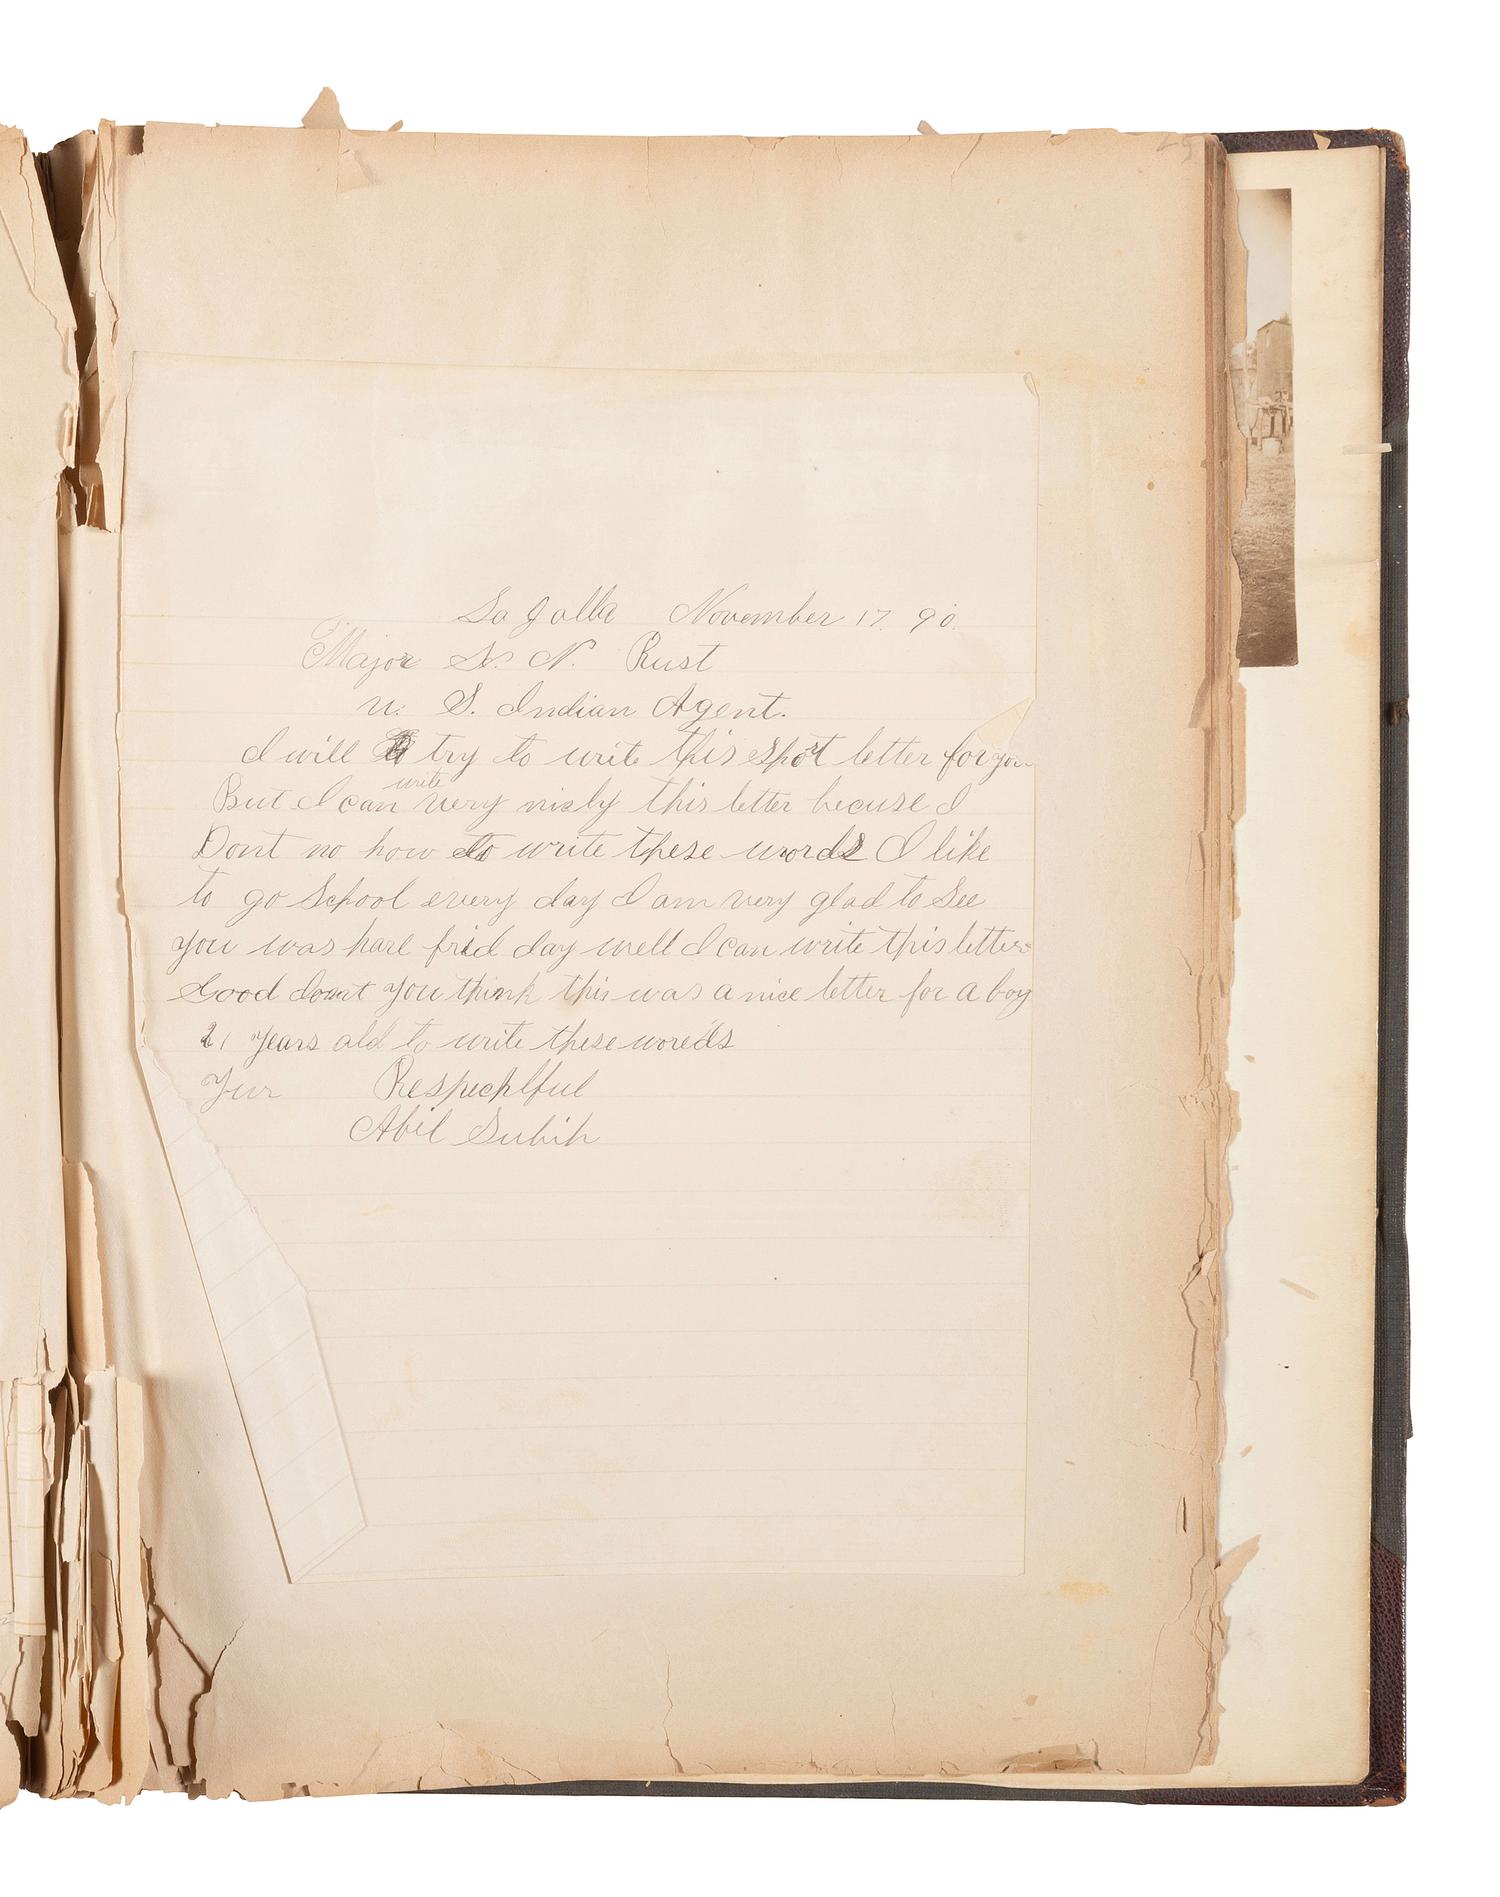 La Jolla November 17. 90.
Major H. N. Rust
U. S. Indian Agent.
I will try to write this short letter for you
But I can write very nisly this letter becuse I
Dont no how to write these words I like
to go School every day I am very glad to See
you was hare frid day well I can write this letter
Good doant you think this was a nice letter for a boy
21 years old to write these woreds
Yur Respechlful
Abil Subish